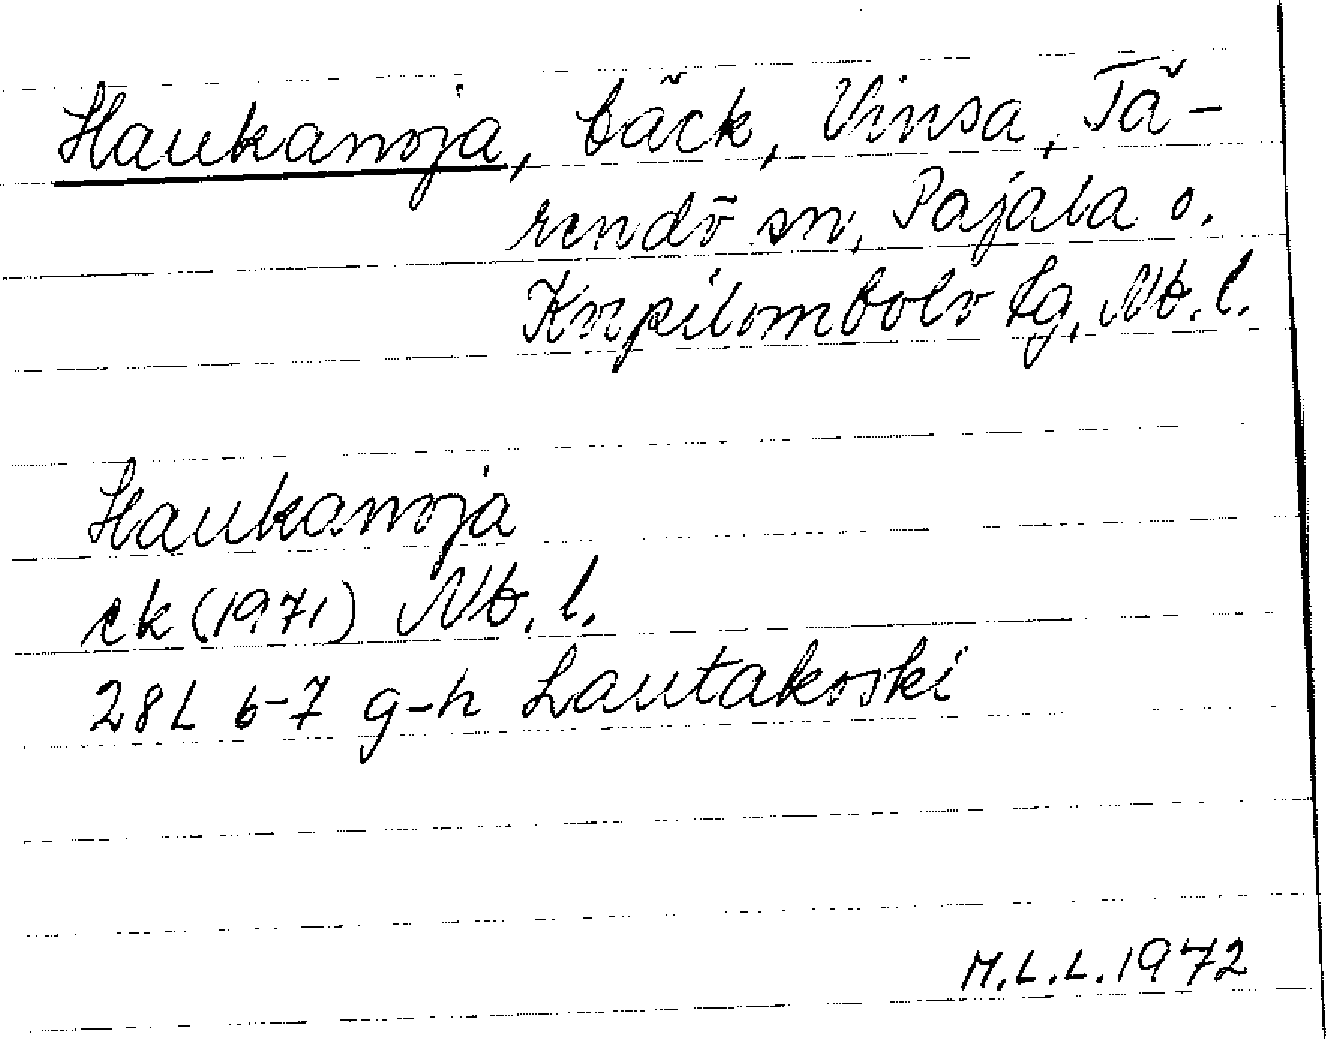 Haukanoja, bäck, Vinsa, Tä-
rendö sn, Pajala o.
Korpilombolo tg, Nb. l.
Haukanoja
ek (1971) Nb. l.
28L 6-7 g-h Lautakoski
M.L.L. 1972